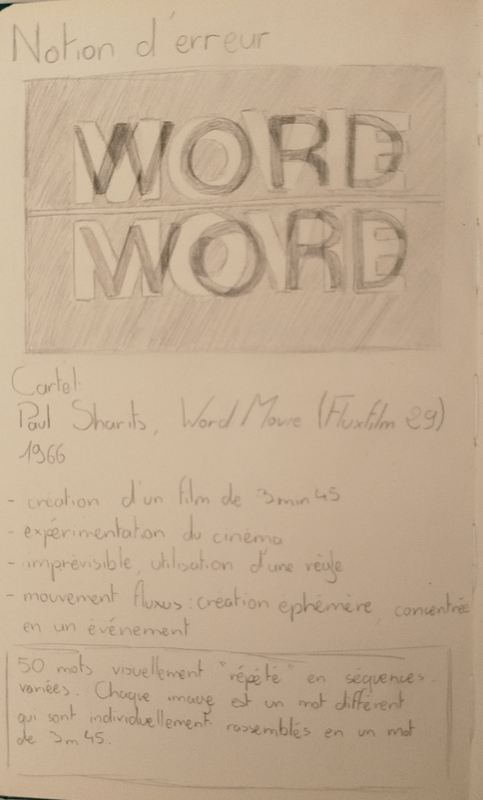 Notion d'erreur
WORD
WORD
Cartel:
Paul Sharits, Word Movie (Fluxfilm 29)
1966
- création d'un film de 3min45
- expérimentation du cinéma
- imprévisible, utilisation d'une règle
- mouvement fluxus : création ephémère, concentrée
en un événement
50 mots visuellement "répété" en séquences
variées. Chaque image est un mot différent
qui sont individuellement rassemblés en un mot
de 3m45.